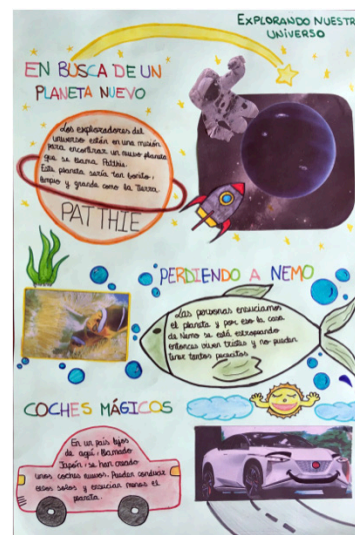 EXPLORANDO NUESTR
UNIVERSO
EN BUSCA DE UN
PLANETA NUEVO
Los exploradores del
universo están en una misión
para encontrar un nuevo planeta
que se llama Patthie.
Este planeta sería tan bonito,
limpio y grande como la Tierra.
PATTHIE
PERDIENDO A NEMO
Las personas ensuciamos
el planeta y por eso la casa
de Nemo se está estropeando
entonces viven tristes y no pueden
tener tantos pececitos.
COCHES MÁGICOS
En un país lejos
de aquí, llamado
Japón, se han creado
unos coches nuevos. Pueden conducir
ellos solos y ensucian menos el
planeta.